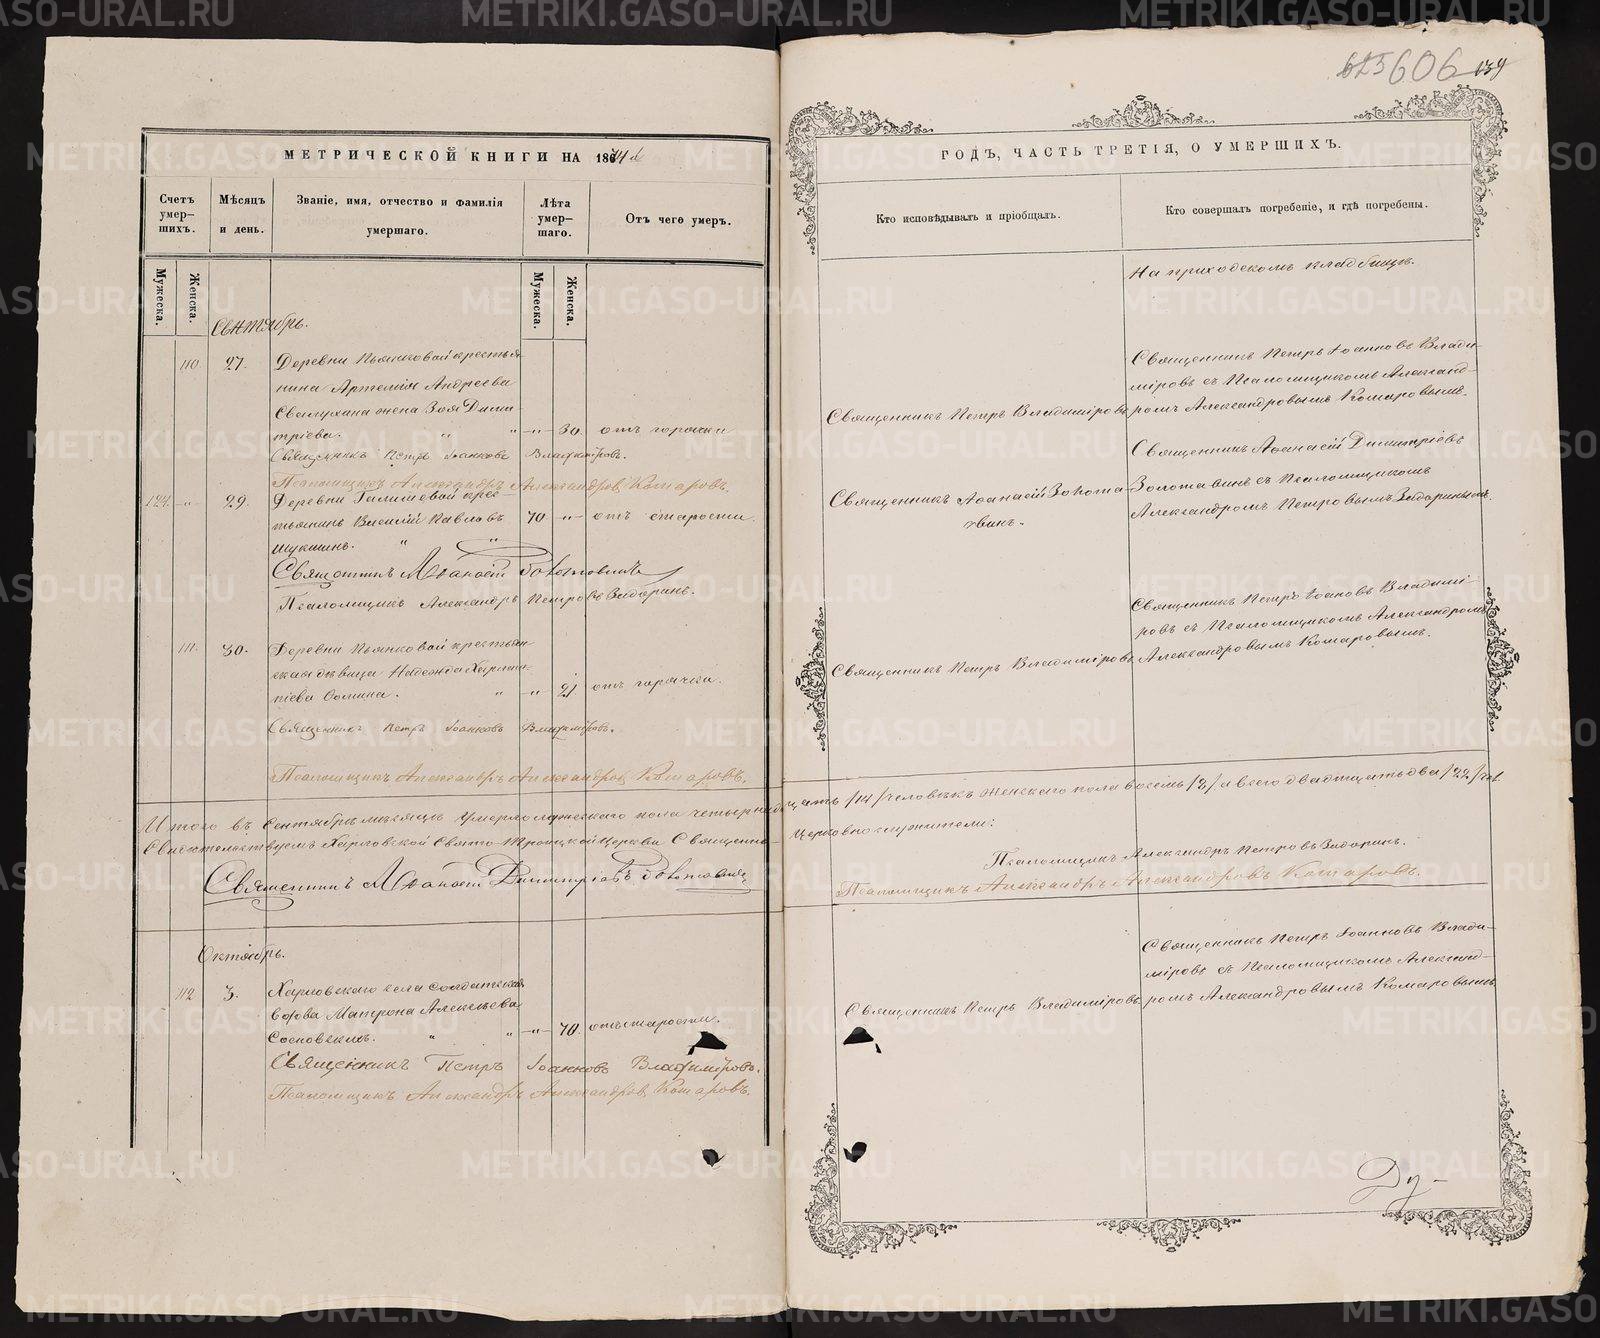 625 606 139
МЕТРИЧЕСКОЙ КНИГИ НА 1874й
Счетъ умер-
шихъ.
Мѣсяцъ
и день.
Званіе, имя, отчество и фамилія
умершаго.
Лѣта
умер-
шаго.
Отъ чего умеръ.
Мужеска.
Женска.
Мужеска.
Женска.
Сентябрь.
110. 27. Деревни Пьянковой крестья-
нина Артемія Андреева
жена Зоя Дими-
тріева. " " -"- 30. отъ горячки
Священникъ Петръ Іоанновъ Владиміровъ.
Псаломщикъ Александръ Александровъ Комаровъ.
124. -"- 29. Деревни Галишевой крес-
тьянинъ Василій Павловъ 70 -"- отъ старости.
Щукинъ. " "
Священникъ Аѳанасій Золотавинъ
Псаломщикъ Александръ Петровъ Задоринъ.
111. 30. Деревни Пьянковой крестьян-
ская дѣвица Надежда
Ѳомина. " -"- 21. отъ горячки.
Священникъ Петръ Іоанновъ Владиміровъ.
Псаломщикъ Александръ Александровъ Комаровъ.
Итого въ Сентябрѣ мѣсяцѣ умерло мужескаго пола четырнад-
Свидѣтельствуемъ Харловской Свято-Троицкой Церкви Священно-
Священникъ Аѳанасій Димитріевъ Золотавинъ
Октябрь.
112 3. Харловскаго села солдатская
вдова Матрона Алексѣева
Сосновскихъ. " " -"- 70. отъ старости.
Священникъ Петръ Іоанновъ Владиміровъ.
Псаломщикъ Александръ Александровъ Комаровъ.
ГОДЪ, ЧАСТЬ ТРЕТІЯ, О УМЕРШИХЪ.
Кто исповѣдывалъ и пріобщалъ.
Кто совершалъ погребеніе, и гдѣ погребены.
На приходскомъ кладбищѣ.
Священникъ Петръ Іоанновъ Влади-
міровъ съ Псаломщикомъ Александ-
Священникъ Петръ Владиміровъ
ромъ Александровымъ Комаровымъ.
Священникъ Аѳанасій Димитріевъ
Священникъ Аѳанасій Золота-
винъ.
Золотавинъ съ Псаломщикомъ
Александромъ Петровымъ Задоринымъ.
Священникъ Петръ Іоановъ Владимі-
ровъ съ Псаломщикомъ Александромъ
Священникъ Петръ Владиміровъ
Александровымъ Комаровымъ.
цать /14/ человѣкъ женскаго пола восемь /8/ а всего двадцать два /22/ чел.
Церковнослужители:
Псаломщикъ Александръ Петровъ Задоринъ.
Псаломщикъ Александръ Александровъ Комаровъ.
Священникъ Петръ Іоанновъ Влади-
міровъ съ Псаломщикомъ Александ-
Священникъ Петръ Владиміровъ.
ромъ Александровымъ Комаровымъ
Ду-
METRIKI.GASO-URAL.RU